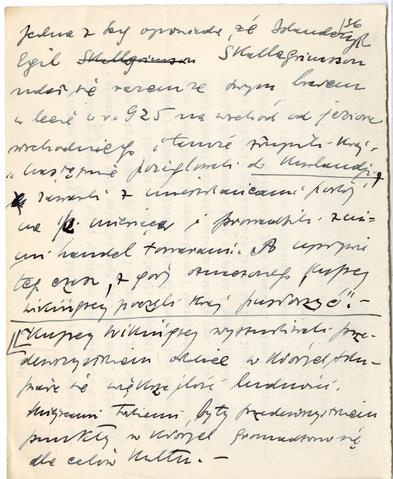 Jedna z sag opowiada, że Islandczyk
Egil Skallagrimsson
udał się razem ze swym bratem
w lecie w r. 925 na wschód od jeziora
wschodniego i tamże
następnie pożeglowali do Kurlandji,
zawarli z mieszkańcami pokój
na miesiąc i prowadzili z ni-
mi handel towarami. Po upływie
tego czasu, z góry oznaczonego, kupcy
wikingscy poczęli kraj pustoszyć". -
Kupcy wikingscy wyszukiwali prze-
dewszystkiem okolice w których sku-
piała się większa ilość ludności.
Miejscami takiemi, były przedewszystkiem
punkty w których gromadzono się
dla celów kultu. -